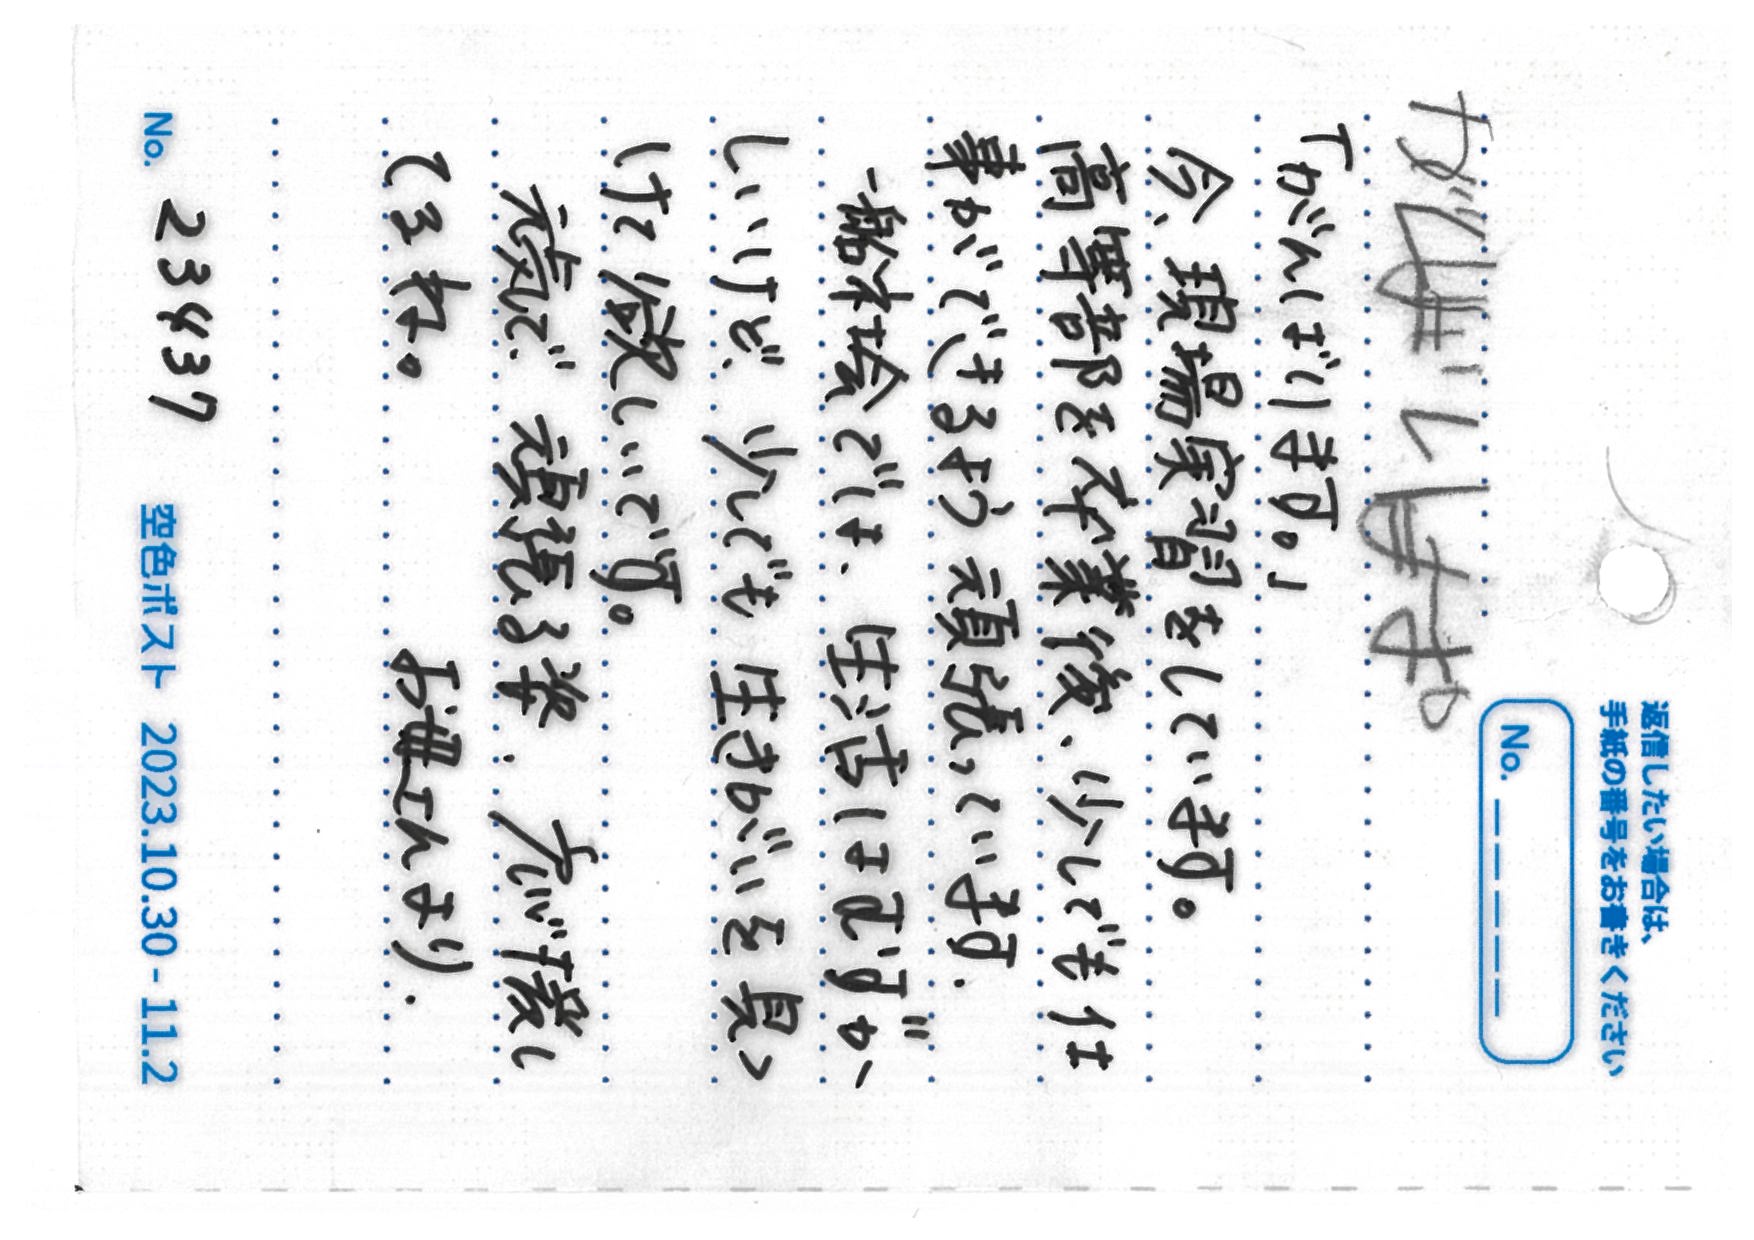 返信したい場合は、
手紙の番号をお書きください
No. _ _ _ _ _
がんばります。
「がんばります。」
今、現場実習をしています。
高等部を卒業後、少しでも仕
事ができるよう頑張っています.
一般社会では、生活はむずか
しいけど、少しでも生きがいを見つ
けて欲しいです。
元気で、頑張る姿、応援し
てるね。 お母さんより.
No. 23437
空色ポスト 2023.10.30 - 11.2